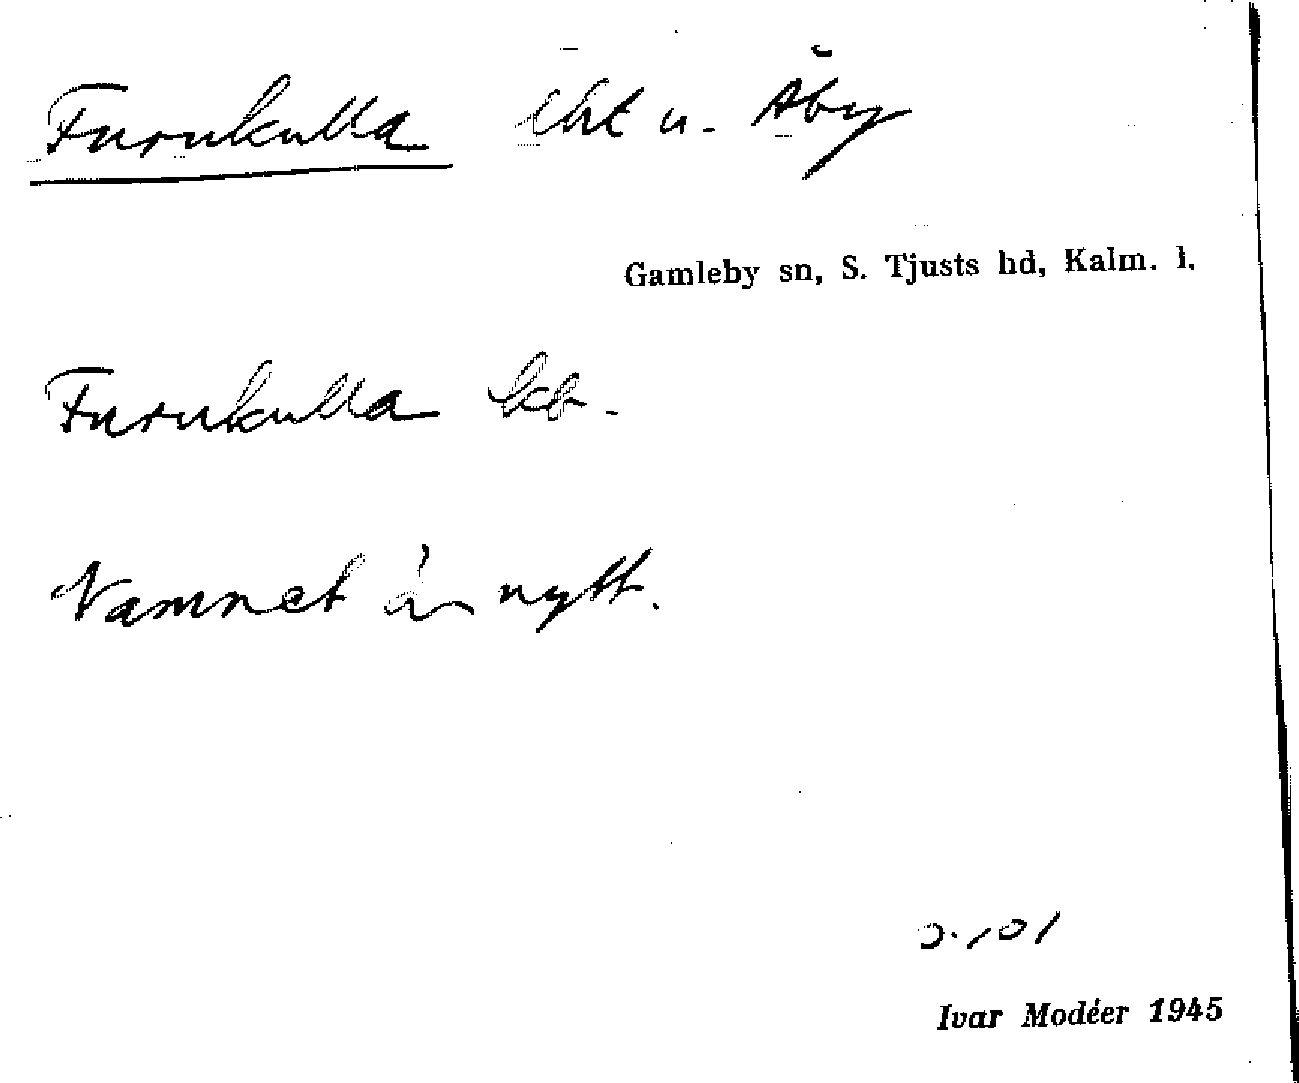 Furukulla lht u. Åby
Gamleby sn, S. Tjusts hd, Kalm. l.
Furukulla kb.
Namnet är nytt.
101
Ivar Modéer 1945